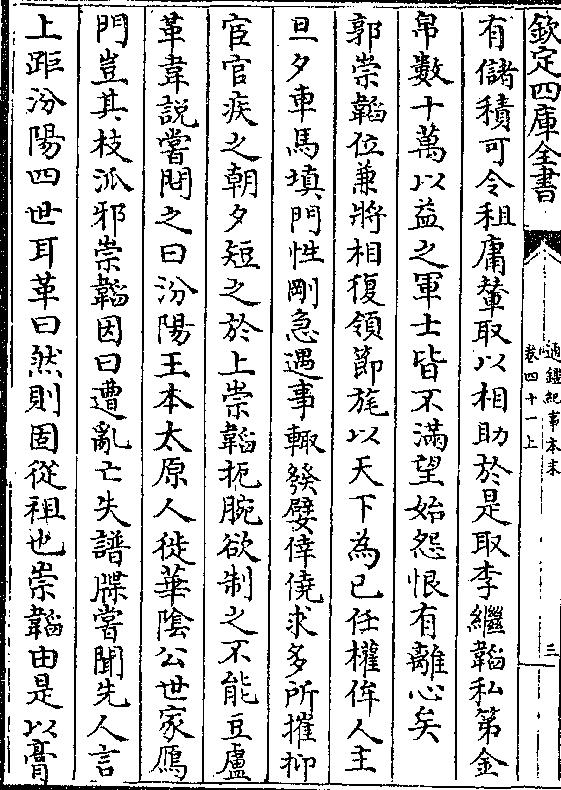 欽定四庫全書
通鑑紀事本末
卷四十一上
三
有儲積可令租庸輦取以相助於是取李繼韜私第金
帛數十萬以益之軍士皆不滿望始怨恨有離心矣
郭崇韜位兼將相復領節旄以天下為己任權侔人主
旦夕車馬填門性剛急遇事輙發嬖倖僥求多所摧抑
宦官疾之朝夕短之於上崇韜扼腕欲制之不能豆盧
革韋說嘗問之曰汾陽王本太原人徙華隂公世家鴈
門豈其枝派邪崇韜因曰遭亂亡失譜牒嘗聞先人言
上距汾陽四世耳革曰然則固從祖也崇韜由是以膏